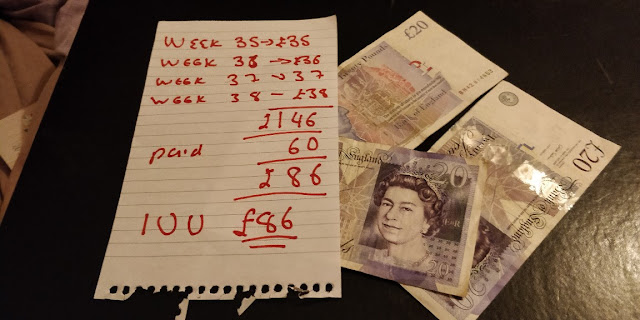 WEEK 35→£35
WEEK 36 →£36
WEEK 37 → 37
WEEK 38 – £38
£146
paid 60
£86
IUU £86
£20
Pounds
England
£20
Bank of England
England
20
20